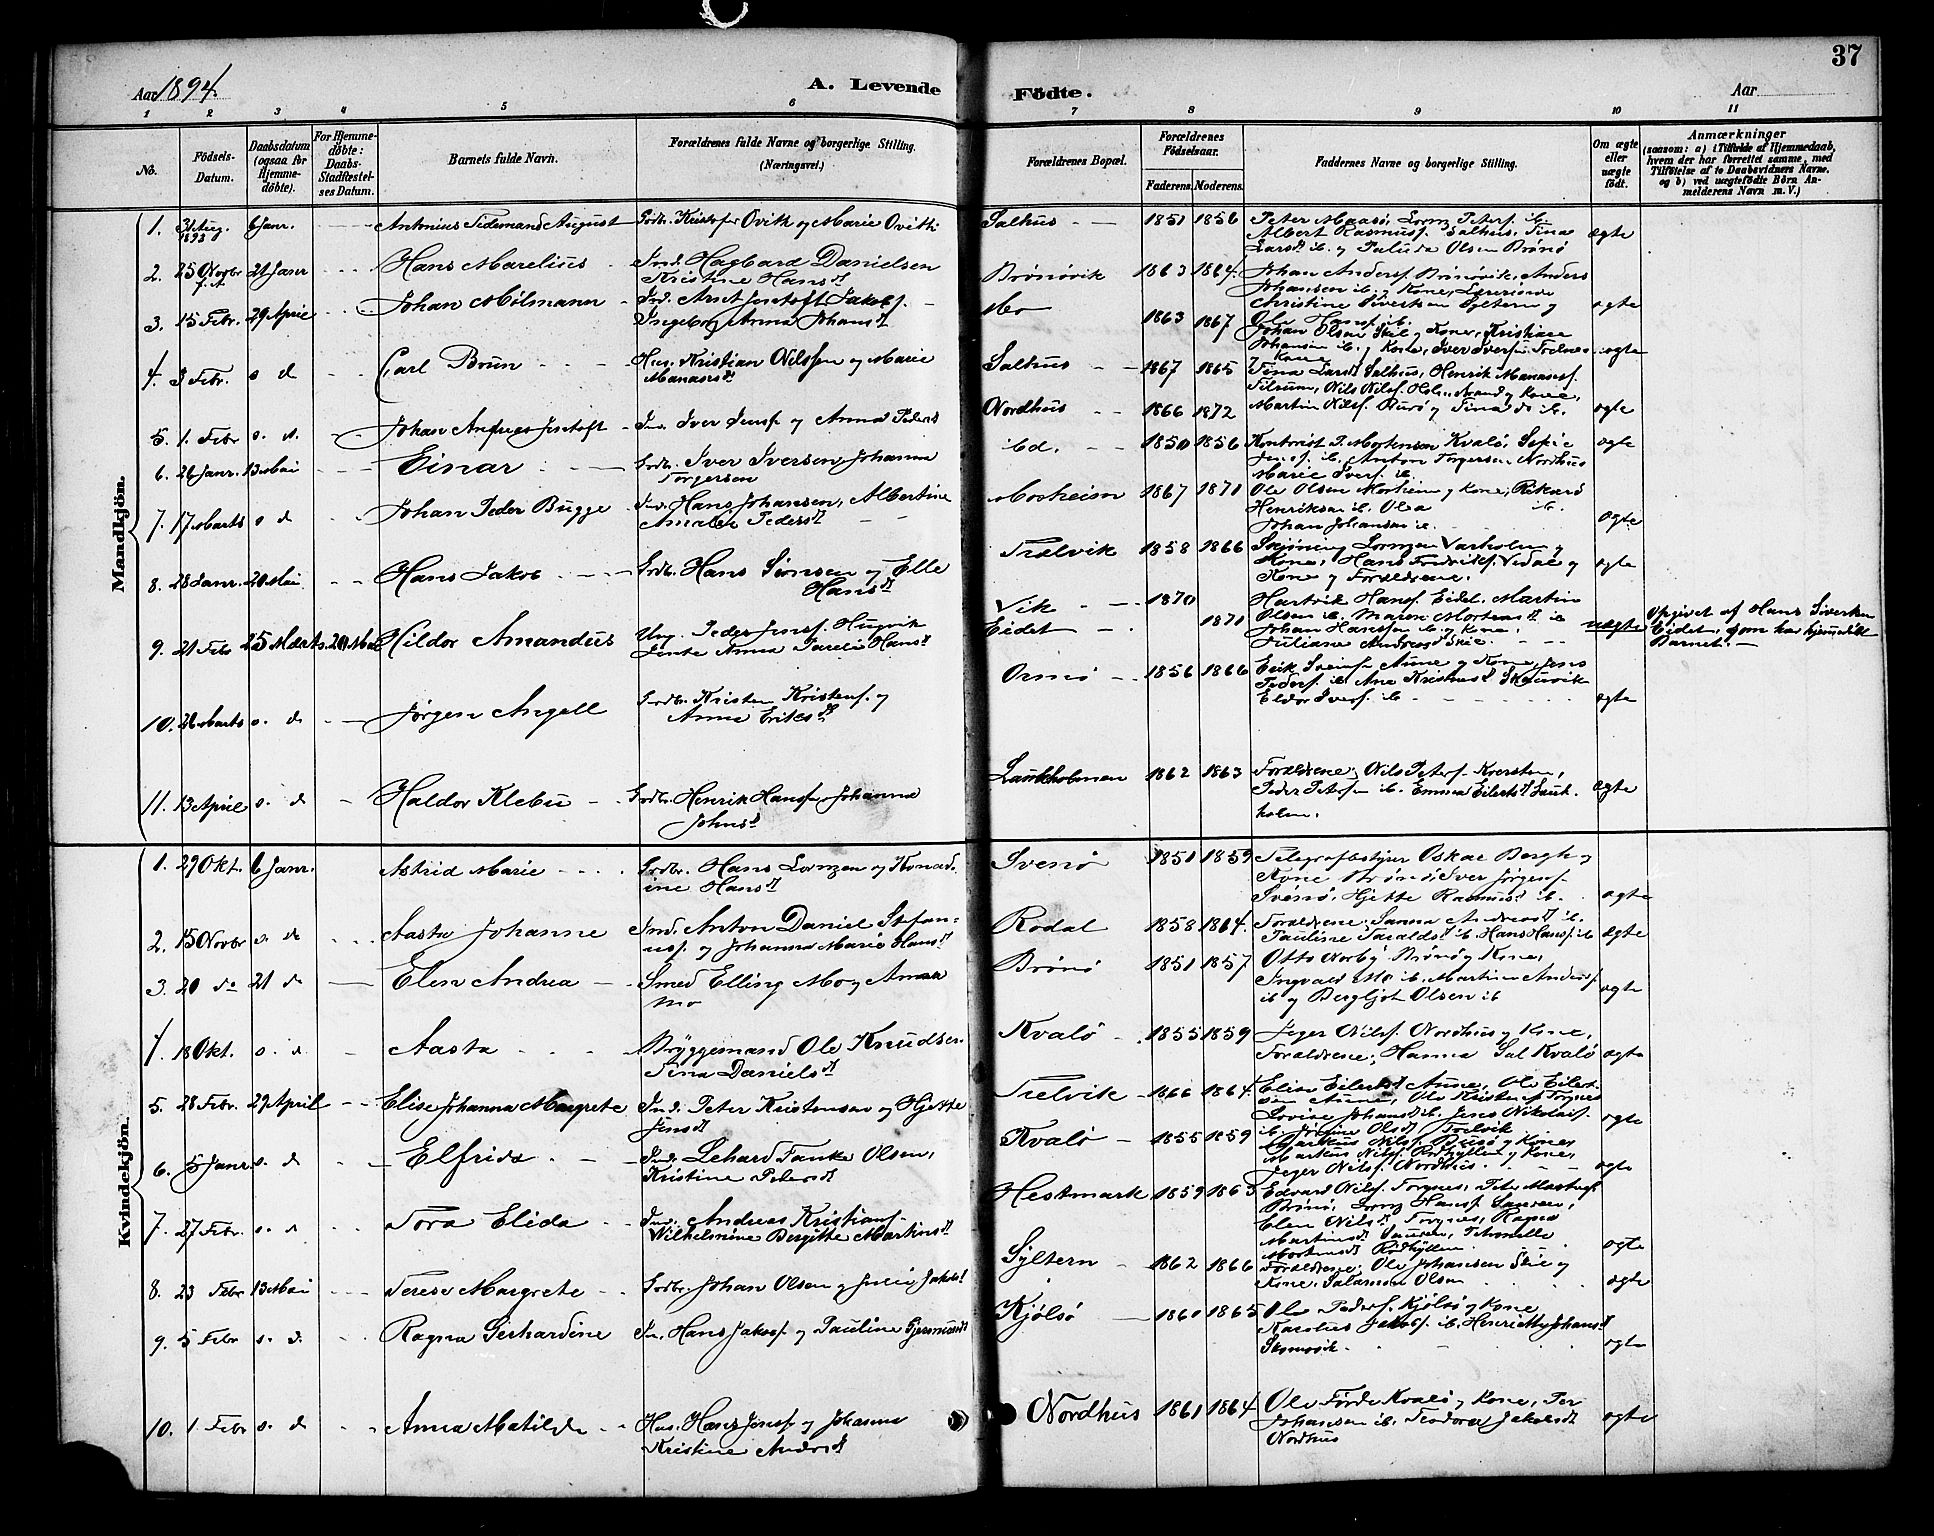 37
Aar 1894. A. Levende Fødte. Aar
1 2 3 4 5 6 7 8 9 10 11
No. Fødsels-Datum. Daabsdatum (ogsaa for Hjemme-døbte). For Hjemme-døbte: Daabs-Stadfæstel-ses Datum. Barnets fulde Navn. Forældrenes fulde Navne og borgerlige Stilling. (Næringsvei.) Forældrenes Bopæl. Forældrenes Fødselsaar. Faderens. Moderens. Faddernes Navne og borgerlige Stilling. Om ægte eller uægte født. Anmærkninger (saasom: a) i Tilfælde af Hjemmedaab, hvem der har forrettet samme, med Tilføielse af to Daabsvidners Navne, og b) ved uægtefødte Børn An-melderens Navn m. V.)
Mandkjøn.
1. 31 Aug. 1893 6 Janr. Antonius Tidemand August Gdbr. Kristofer Ovith og Marie Ovith Salhus 1851 1856 Peter Maasø, Lornz Peters. ib.
Albert Rasmuss. Salhus, Tina ægte
Larsdt ib. og Palude Olsen Brønø
2. 25 Novbr f. A. 21 Janr Hans Marelius Ind. Hagbard Danielsen
Kristine Hansdt Brønøvik 1863 1864 Johan Anders. Brønøvik, Anders
Johansen ib. og Kone, Lærerinde
Christine Siversen Syltern og ægte
Ole Hans. ib.
3. 15 Febr. 29 April Johan Mølmann Ind. Arnt Jentoft Jakobs.
Ingeborg Anna Johansdt Mo 1863 1867 Johan Olsen Skil og Kone, Kristian
Johansen ib. og Kone, Iver Ivers. ægte
Kone
4. 3 Febr. s d Carl Brun Hus. Kristian Nilssen og Marie
Manassdt Salhus 1867 1865 Tina Larsdt Salhus, Henrik Manass.
Tilrum, Nils Nils. Holm, Strand og Kone,
5. 1. Febr s. d. Johan Andreas Jentoft Ind. Iver Jens. og Anna Pedersdt Nordhus 1866 1872 Martin Nils. Burø og Tina do ib. ægte
6. 26 Janr. 13 Mai Einar Gdbr. Iver Iversen, Johanna
Torgersen ibd. 1850 1856 P. Mortensen Kvalø, Skie
Jens. ib. Anton Torgersen Nordhus ægte
Marie Ivers. ib
7. 17 Marts s d Johan Peder Bugge Ind. Hans Johansen, Albertine
Amalie Pedersdt Mosheim 1867 1871 Ole Olsen Mosheim og Kone, Rikard
Henriksen ib. Olea ib.
Johan Johansen ib. ægte
8. 28 Janr. 20 Mai Hans Jakob Gdbr. Hans Simsen og Elle
Hansdt Trælvik 1858 1866 Lornzen Varholm og
Kone, Hans Fredriks. Vedal og ægte
Kone og Forældrene.
9. 21 Febr 25 Marts 20 Mai Hildor Amandus Ung. Peder Jens. Husvik
Jente Anna Parelie Hansdt Vik 1870
Eidet 1871 Hartvik Hans. Eidet, Martin
Olsen ib. Maren Mortensdt ib
Johan Hanssen ib. og Kone. uægte Opgivet af Hans Siverten
Juliane Andreasdt Skie Eidet, som har hjemmedøbt
Barnet.
10. 28 Marts s. d Jørgen Angell Gdbr. Kristen Kristens. og
Anna Eriksdt Ormø 1856 1866 Erik Svens. Aune og Kone, Jens
Peders. ib. Ane Kristensdt Skomovik
Eldor Ivers. ib ægte
11. 13 April s. d Haldor Klebu Gdbr. Henrik Hanss., Johanna
Johnsdt Laukholmen 1862 1863 Forældrene, Nils Peters. Kversten,
Peder Peters. ib. Emma Eilertsdt Lauk- ægte
holm.
Kvindekjøn.
1. 29 Okt. 6 Janr. Astrid Marie Gdbr. Hans Lornzen og Konrad-
ine Hansdt Svenø 1851 1859 Telegrafbestyrer Oskar Bergh og
Kone Brønø, Iver Jørgens.
Svenø, Hjette Rasmusdt ib. ægte
2. 15 Novbr s. d Aasta Johanne Ind. Anton Daniel Stefan-
us. og Johanna Marie Hansdt Rodal 1858 1864. Forældrene, Sanna Andreasdt ib.
Pauline Taraldsdt ib. Hans Hans. ib ægte
3. 20 do 21 d Elen Andrea Smed Elling Mo og Anna
Mo Brønø 1851 1857 Otto Norby Brønø og Kone,
Ingvald Mo ib. Martin Anders.
ib og Bergljot Olsen ib ægte
4 18 Okt. s. d. Aasta Bryggemand Ole Knudsen.
Tina Danielsdt Kvalø 1855 1859 Jeger Nils. Nordhus og Kone,
Forældrene, Hanna Sal Kvalø ægte
5. 28 Febr. 29 April Elise Johanna Margrete Ind. Peter Kristensen og Hjette
Jensdt Trelvik 1866 1864 Elise Eilertsdt Aune, Ole Eilert-
sen Aune, Ole Kristens. Torgnes
Lovise Johansdt ib. Jens Nikolais. ægte
ib. Jørgine Olsdt Trelvik
6. 5 Janr. s. d Elfrida Ind. Lehard Tanke Olsen,
Kristine Pedersdt Kvalø 1855 1859 Markus Nils. Burø og Kone,
Markus Nils. Rødhyllen og Kone,
Jeger Nils. Nordhus. ægte
7. 27 Febr. s. d Tora Elida Ind. Andreas Kristians.
Wilhelmine Bergitte Martinsdt Hestmark 1859 1863 Edvard Nils. Torgnes, Peter Mortens.
Brønø, Lornz Hans. Sauren,
Elen Nilsdt Torgnes, Ragna
Martinsdt Sauren, Petronelle
Mortensdt Rødhyllen. ægte
8. 23 Febr 13 Mai Terese Margrete Gdbr. Johan Olsen og Julie Jakobsdt Syltern 1862 1866 Forældrene, Ole Johansen Skie og
Kone, Salamon Olsen ægte
9. 5 Febr s. d. Ragna Gerhardine In. Hans Jakobs. og Pauline Gjermundsdt Kjølsø 1861 1865 Ole Peders. Kjølsø og Kone
Karolus Jakobs. ib. Henriette Johansdt
Skomovik. ægte
10. 1. Febr s. d Anna Matilde Hus. Hans Jens. og Johanna
Kristine Andersdt Nordhus 1861 1864 Ole Førde Kvalø og Kone, Per
Johansen ib. Teodora Jakobsdt ægte
Nordhus